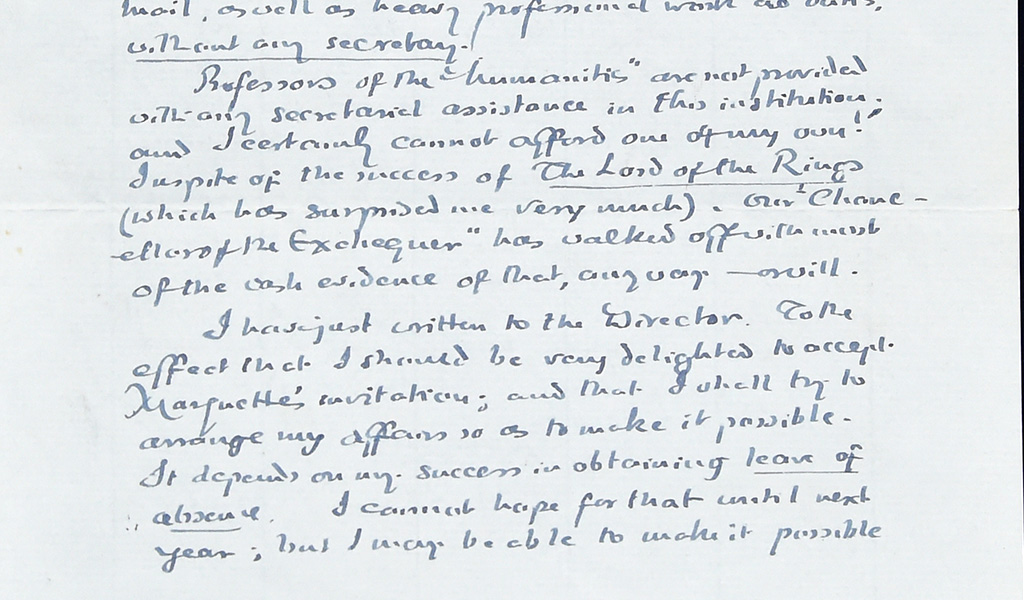 mail, as well as heavy professional work as duties,
without any secretary.
Professors of the "humanities" are not provided
with any secretarial assistance in this institution;
and I certainly cannot afford one of my own!
Inspite of the success of The Lord of the Rings
(which has surprised me very much). Our "Chanc-
-ellor of the Exchequer" has walked off with most
of the cash evidence of that, anyway — or will.
I have just written to the Director. To the
effect that I should be very delighted to accept
Marquette's invitation; and that I shall try to
arrange my affairs so as to make it possible.
It depends on my success in obtaining leave of
absence. I cannot hope for that until next
year; but I may be able to make it possible